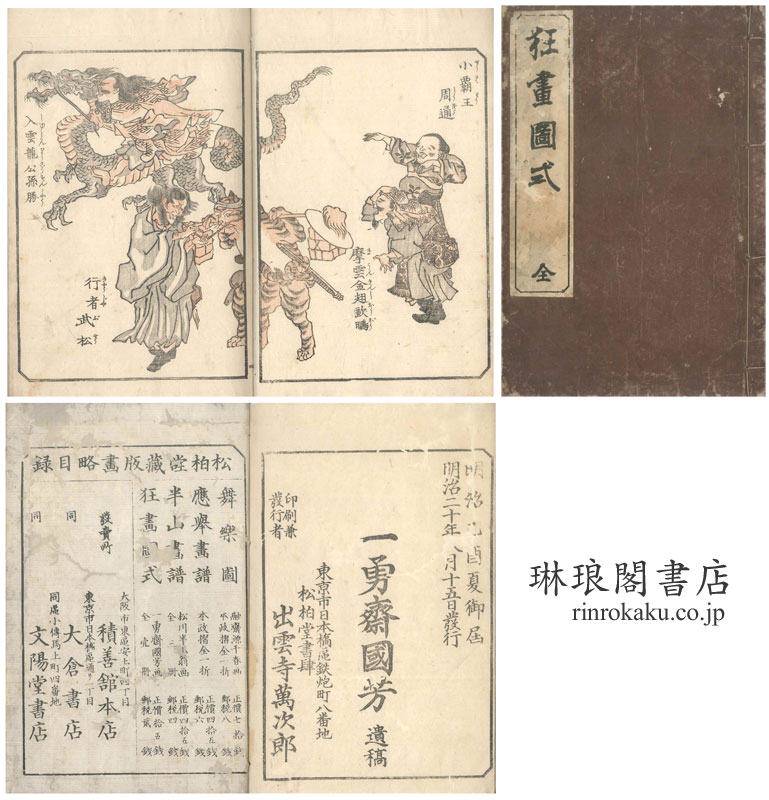 小覇王
周通
摩雲金翅歐鵬
入雲龍公孫勝
行者武松
狂畫圖式
全
明治乙酉夏御届
明治二十年八月十五日發行
一勇齋國芳 遺稿
印刷兼
發行者
東京市日本橋區鉄炮町八番地
松柏堂書肆
出雲寺萬次郎
松柏堂藏版畫略目録
舞樂圖
應舉畫譜
半山畫譜
狂畫圖式
一勇齋國芳画
全壹冊
發賣所
大阪市東區安土町四丁目
積善舘本店
東京市日本橋區通り一丁目
同
大倉書店
同區小傳馬上町四番地
同
文陽堂書店
琳琅閣書店
rinrokaku.co.jp